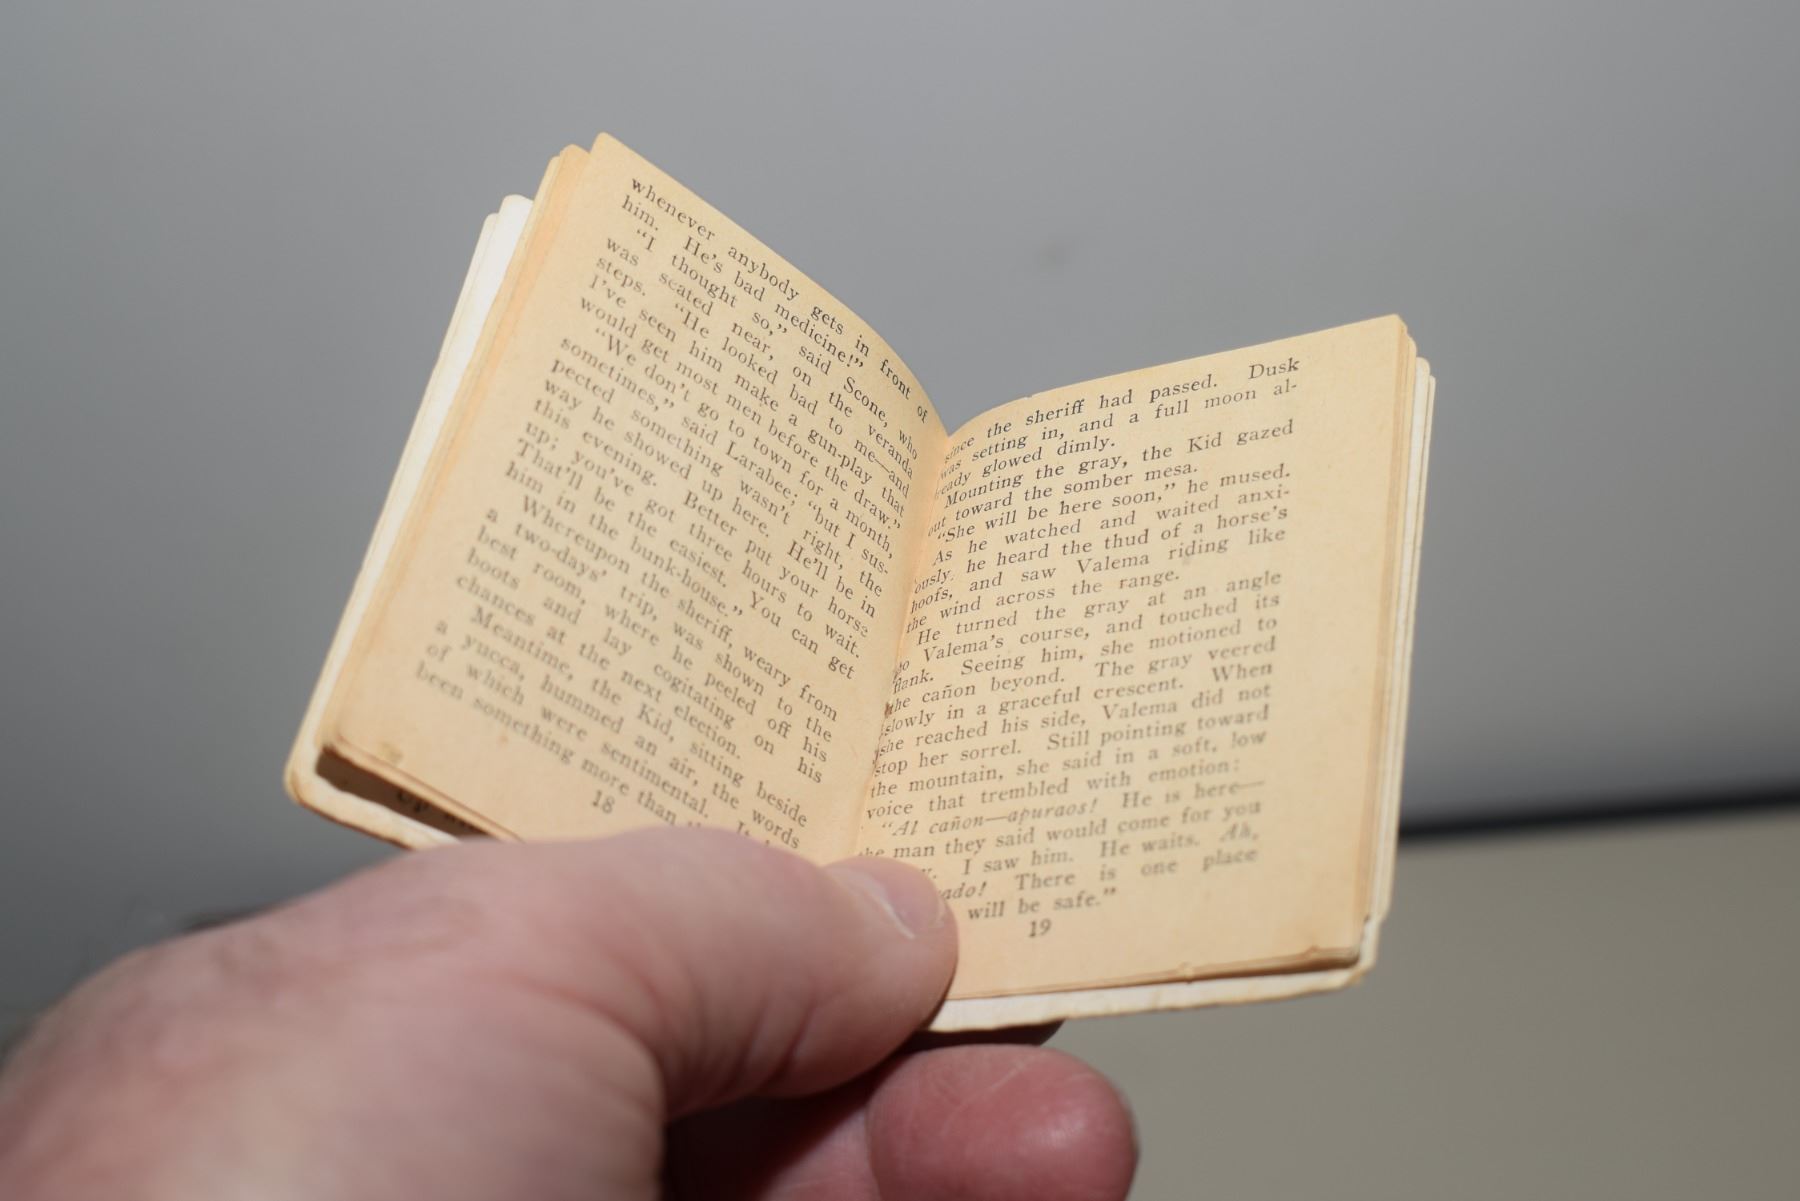 whenever anybody gets in front of
him. He's bad medicine!"
"I thought so," said Scone, who
was seated near, on the veranda
steps. "He looked bad to me—and
I've seen him make a gun-play that
would get most men before the draw."
"We don't go to town for a month,
sometimes," said Larabee; "but I sus-
pected something wasn't right, the
way he showed up here. He'll be in
this evening. Better put your horse
up; you've got three hours to wait.
That'll be the easiest. You can get
him in the bunk-house."
Whereupon the sheriff, weary from
a two-days' trip, was shown to the
best room, where he peeled off his
boots and lay cogitating on his
chances at the next election.
Meantime, the Kid, sitting beside
a yucca, hummed an air, the words
of which were sentimental. It
been something more than
18
since the sheriff had passed. Dusk
was setting in, and a full moon al-
ready glowed dimly.
Mounting the gray, the Kid gazed
out toward the somber mesa.
"She will be here soon," he mused.
As he watched and waited anxi-
ously, he heard the thud of a horse's
hoofs, and saw Valema riding like
the wind across the range.
He turned the gray at an angle
to Valema's course, and touched its
flank. Seeing him, she motioned to
the cañon beyond. The gray veered
slowly in a graceful crescent. When
she reached his side, Valema did not
stop her sorrel. Still pointing toward
the mountain, she said in a soft, low
voice that trembled with emotion:
"Al cañon—apuraos! He is here—
the man they said would come for you
I saw him. He waits. Ah,
There is one place
will be safe."
19